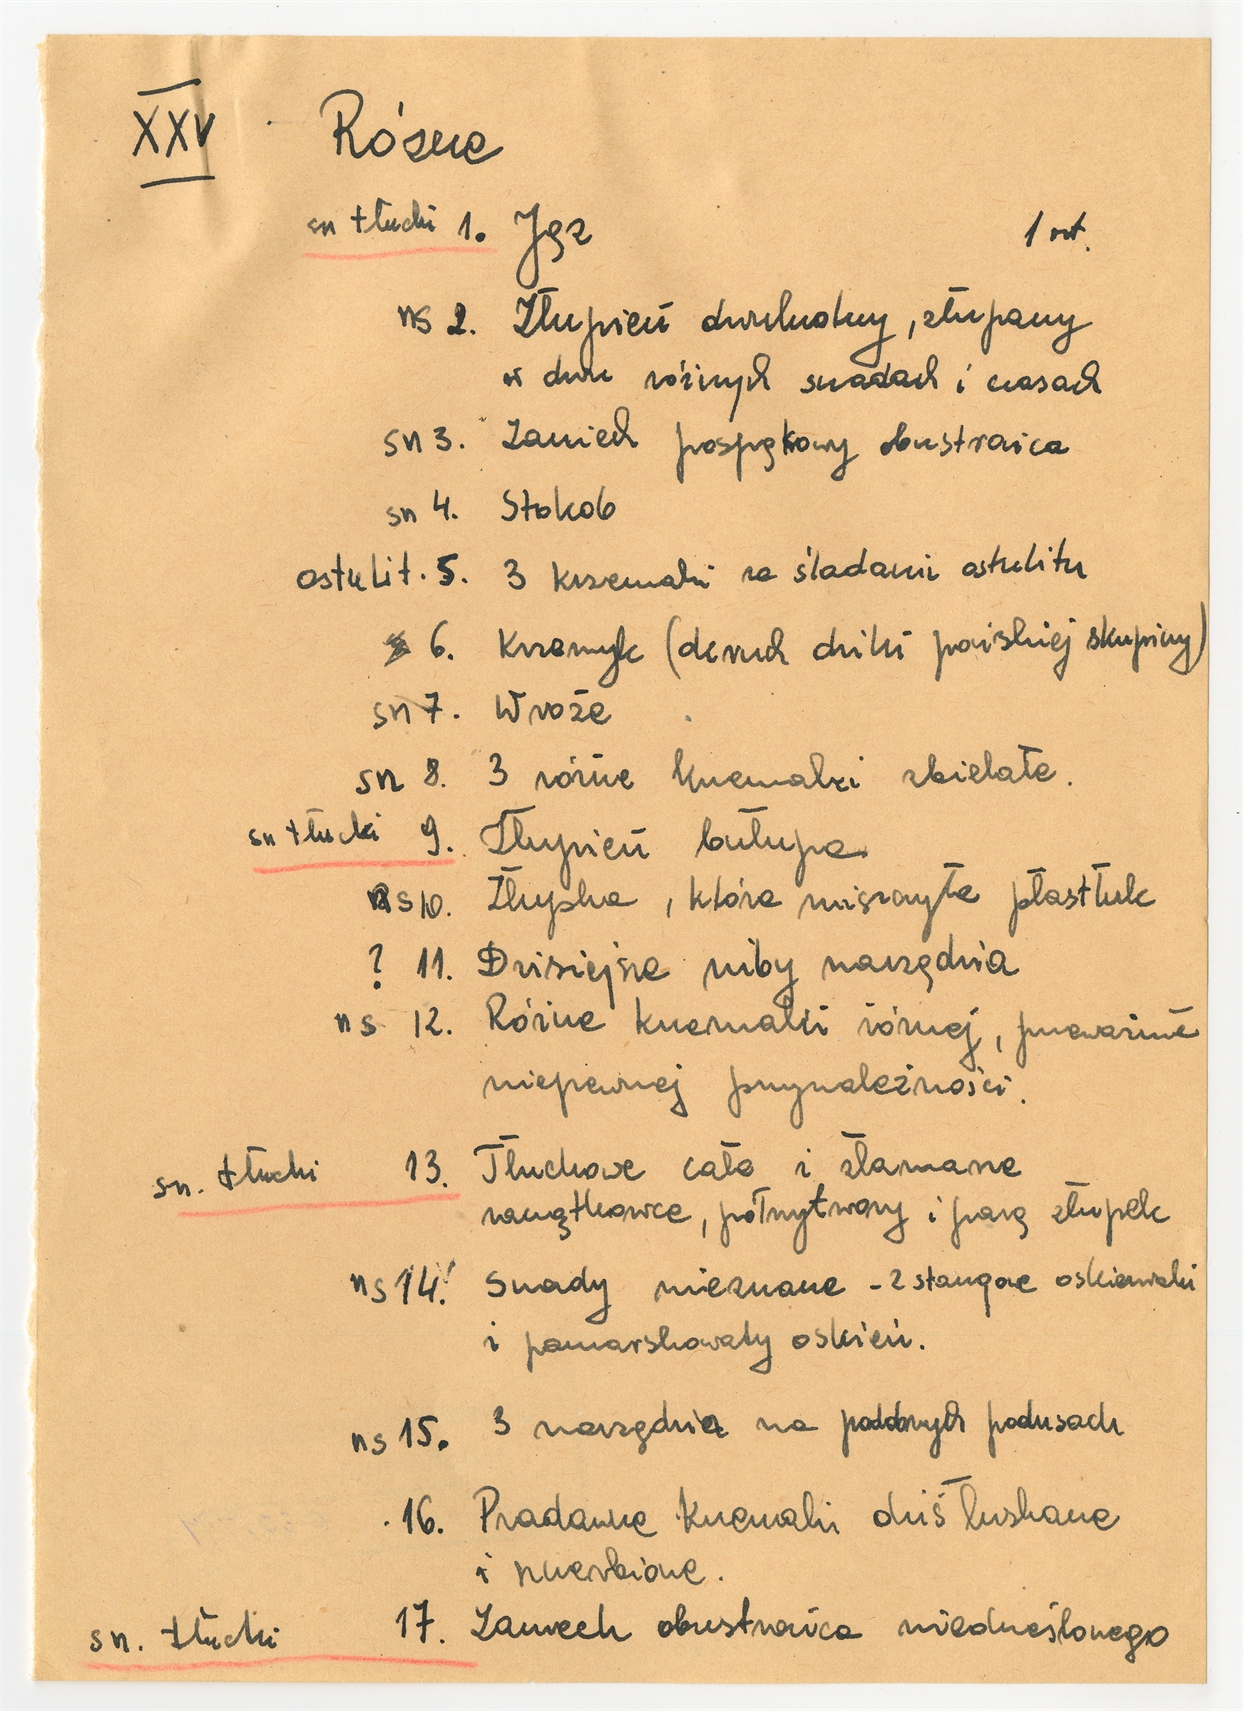 XXV Różne
sn tłucki 1. Jgz 1 szt.
ns 2. Złupień dwukrotny, złupany
w dwu różnych snadach i czasach
sn 3. Zamiech pospękowy obustrońca
sn 4. Stokob
ostulit. 5. 3 krzemalki ze śladami ostulitu
6. Krzemyk (denuch dziki pońskiej skupiny)
sn 7. Wroże
sn 8. 3 różne krzemalki zbielałe.
sn tłucki 9. Złupień butupa
ns 10. Złupka, która niszczyła płastłuk
? 11. Dzisiejsze niby narzędnia
ns 12. Różne krzemalki różnej, przeważnie
niepewnej przynależności.
sn. tłucki 13. Tłuchowe całe i złamane
zaczątkowce, półwytwory i parę złupek
ns 14. Snady nieznane - 2 stangowe oskienki
i pomarskowaty oskień.
ns 15. 3 narzędnia na podobnych podusach
16. Pradawne krzemalki dziś łuskane
i szczerbione.
sn. tłucki 17. Zamiech obustrońca niedoneślonego